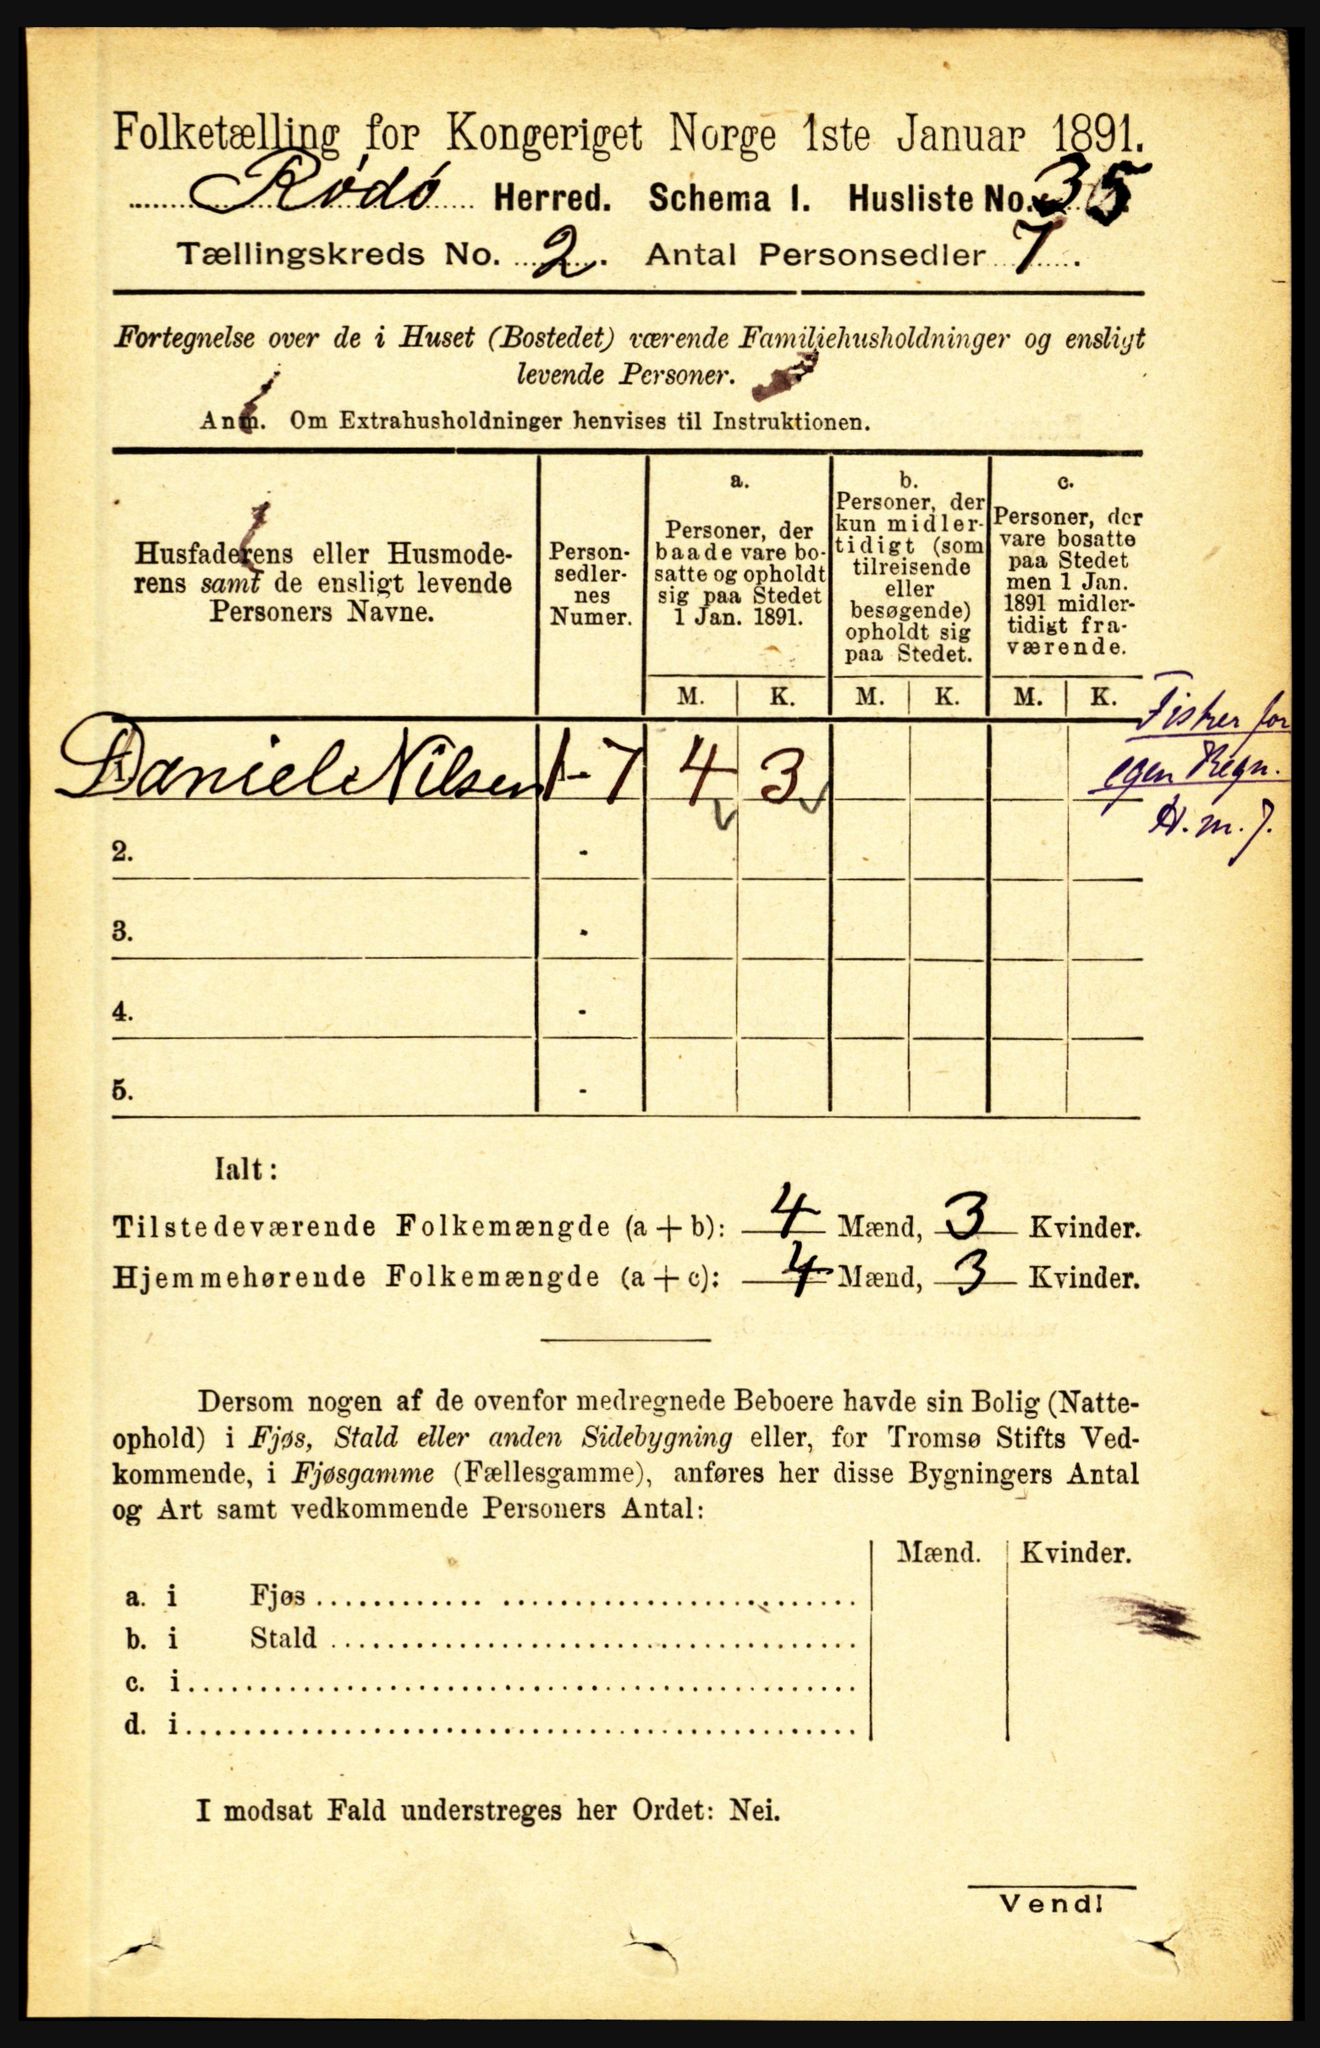 Folketælling for Kongeriget Norge 1ste Januar 1891.
Rødø Herred. Schema I. Husliste No. 35
Tællingskreds No. 2. Antal Personsedler 7.
Fortegnelse over de i Huset (Bostedet) værende Familiehusholdninger og ensligt
levende Personer.
Anm. Om Extrahusholdninger henvises til Instruktionen.
Husfaderens eller Husmode-
rens samt de ensligt levende
Personers Navne.
Person-
sedler-
nes
Numer.
a.
Personer, der
baade vare bo-
satte og opholdt
sig paa Stedet
1 Jan. 1891.
b.
Personer, der
kun midler-
tidigt (som
tilreisende
eller
besøgende)
opholdt sig
paa Stedet.
c.
Personer, der
vare bosatte
paa Stedet
men 1 Jan.
1891 midler-
tidigt fra-
værende.
M. K. M. K. M. K.
Daniel Nilsen 1-7 4 3
Fisker for
egen Regn.
H. m. J.
2. -
3. -
4. -
5. -
Ialt:
Tilstedeværende Folkemængde (a + b): 4 Mænd, 3 Kvinder.
Hjemmehørende Folkemængde (a + c): 4 Mænd, 3 Kvinder.
Dersom nogen af de ovenfor medregnede Beboere havde sin Bolig (Natte-
ophold) i Fjøs, Stald eller anden Sidebygning eller, for Tromsø Stifts Ved-
kommende, i Fjøsgamme (Fællesgamme), anføres her disse Bygningers Antal
og Art samt vedkommende Personers Antal:
Mænd. Kvinder.
a. i Fjøs
b. i Stald
c. i
d. i
I modsat Fald understreges her Ordet: Nei.
Vend!